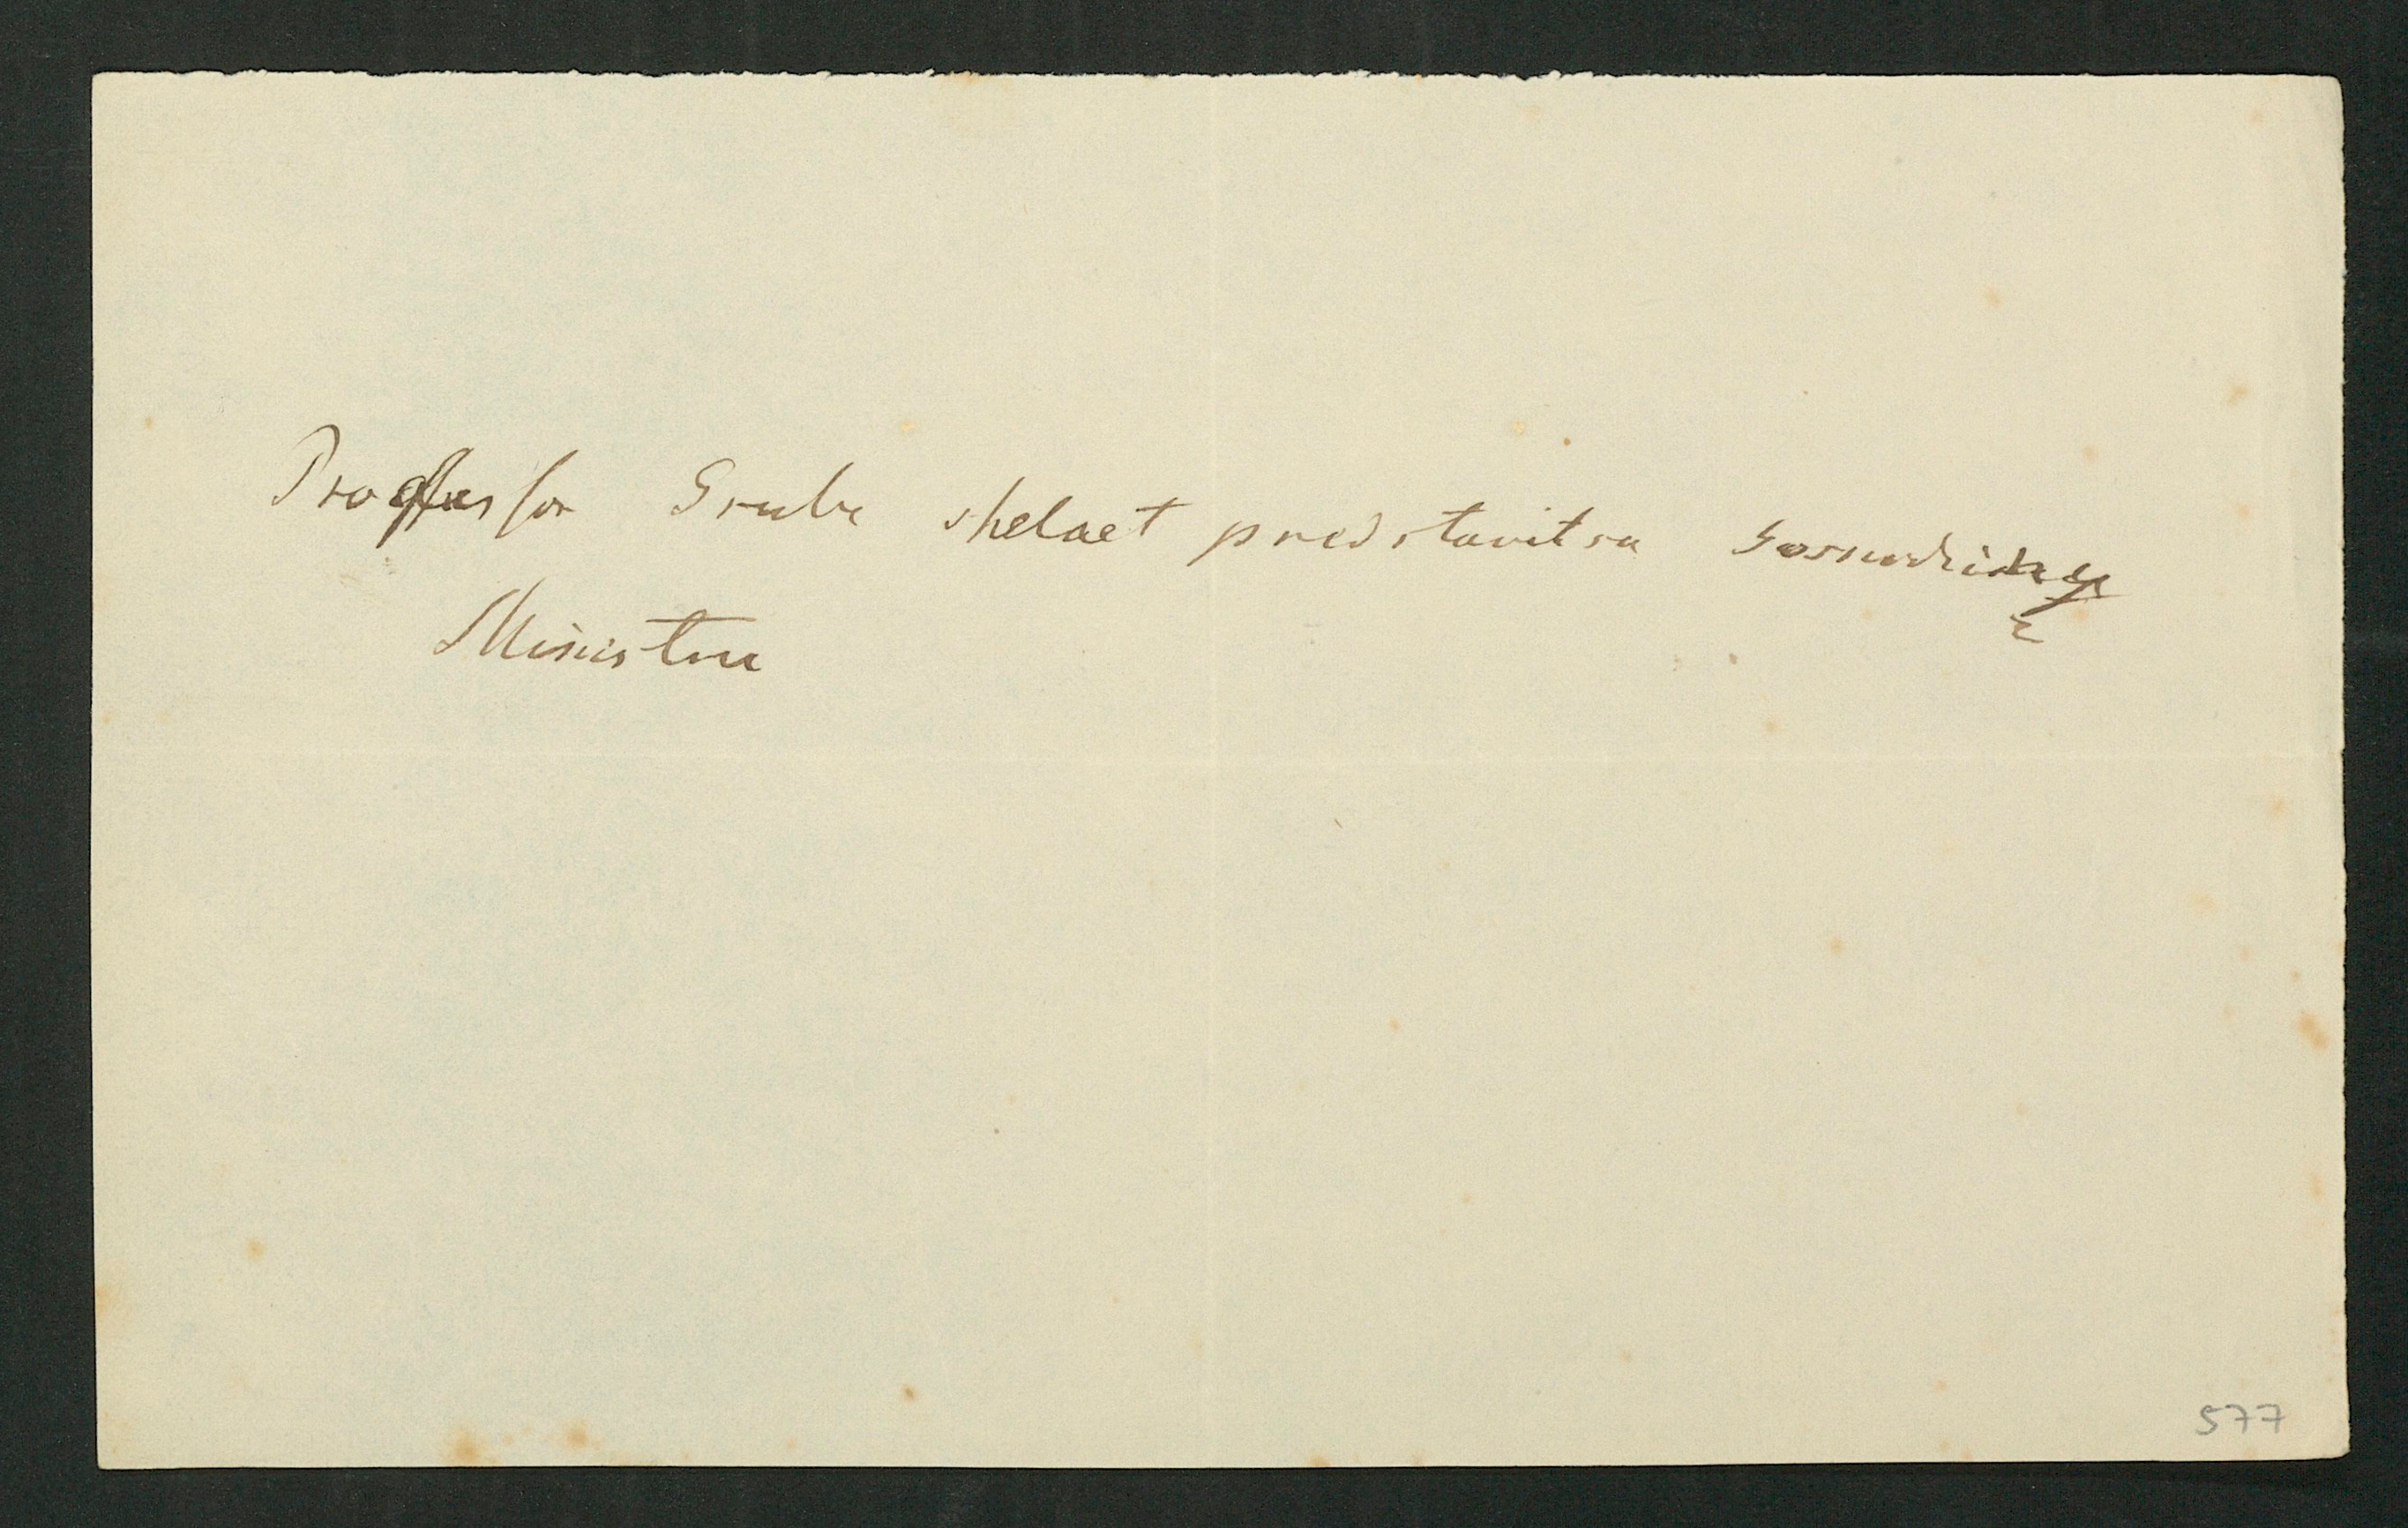 Professor Grube shelaet predstavitsa
Ministru
577